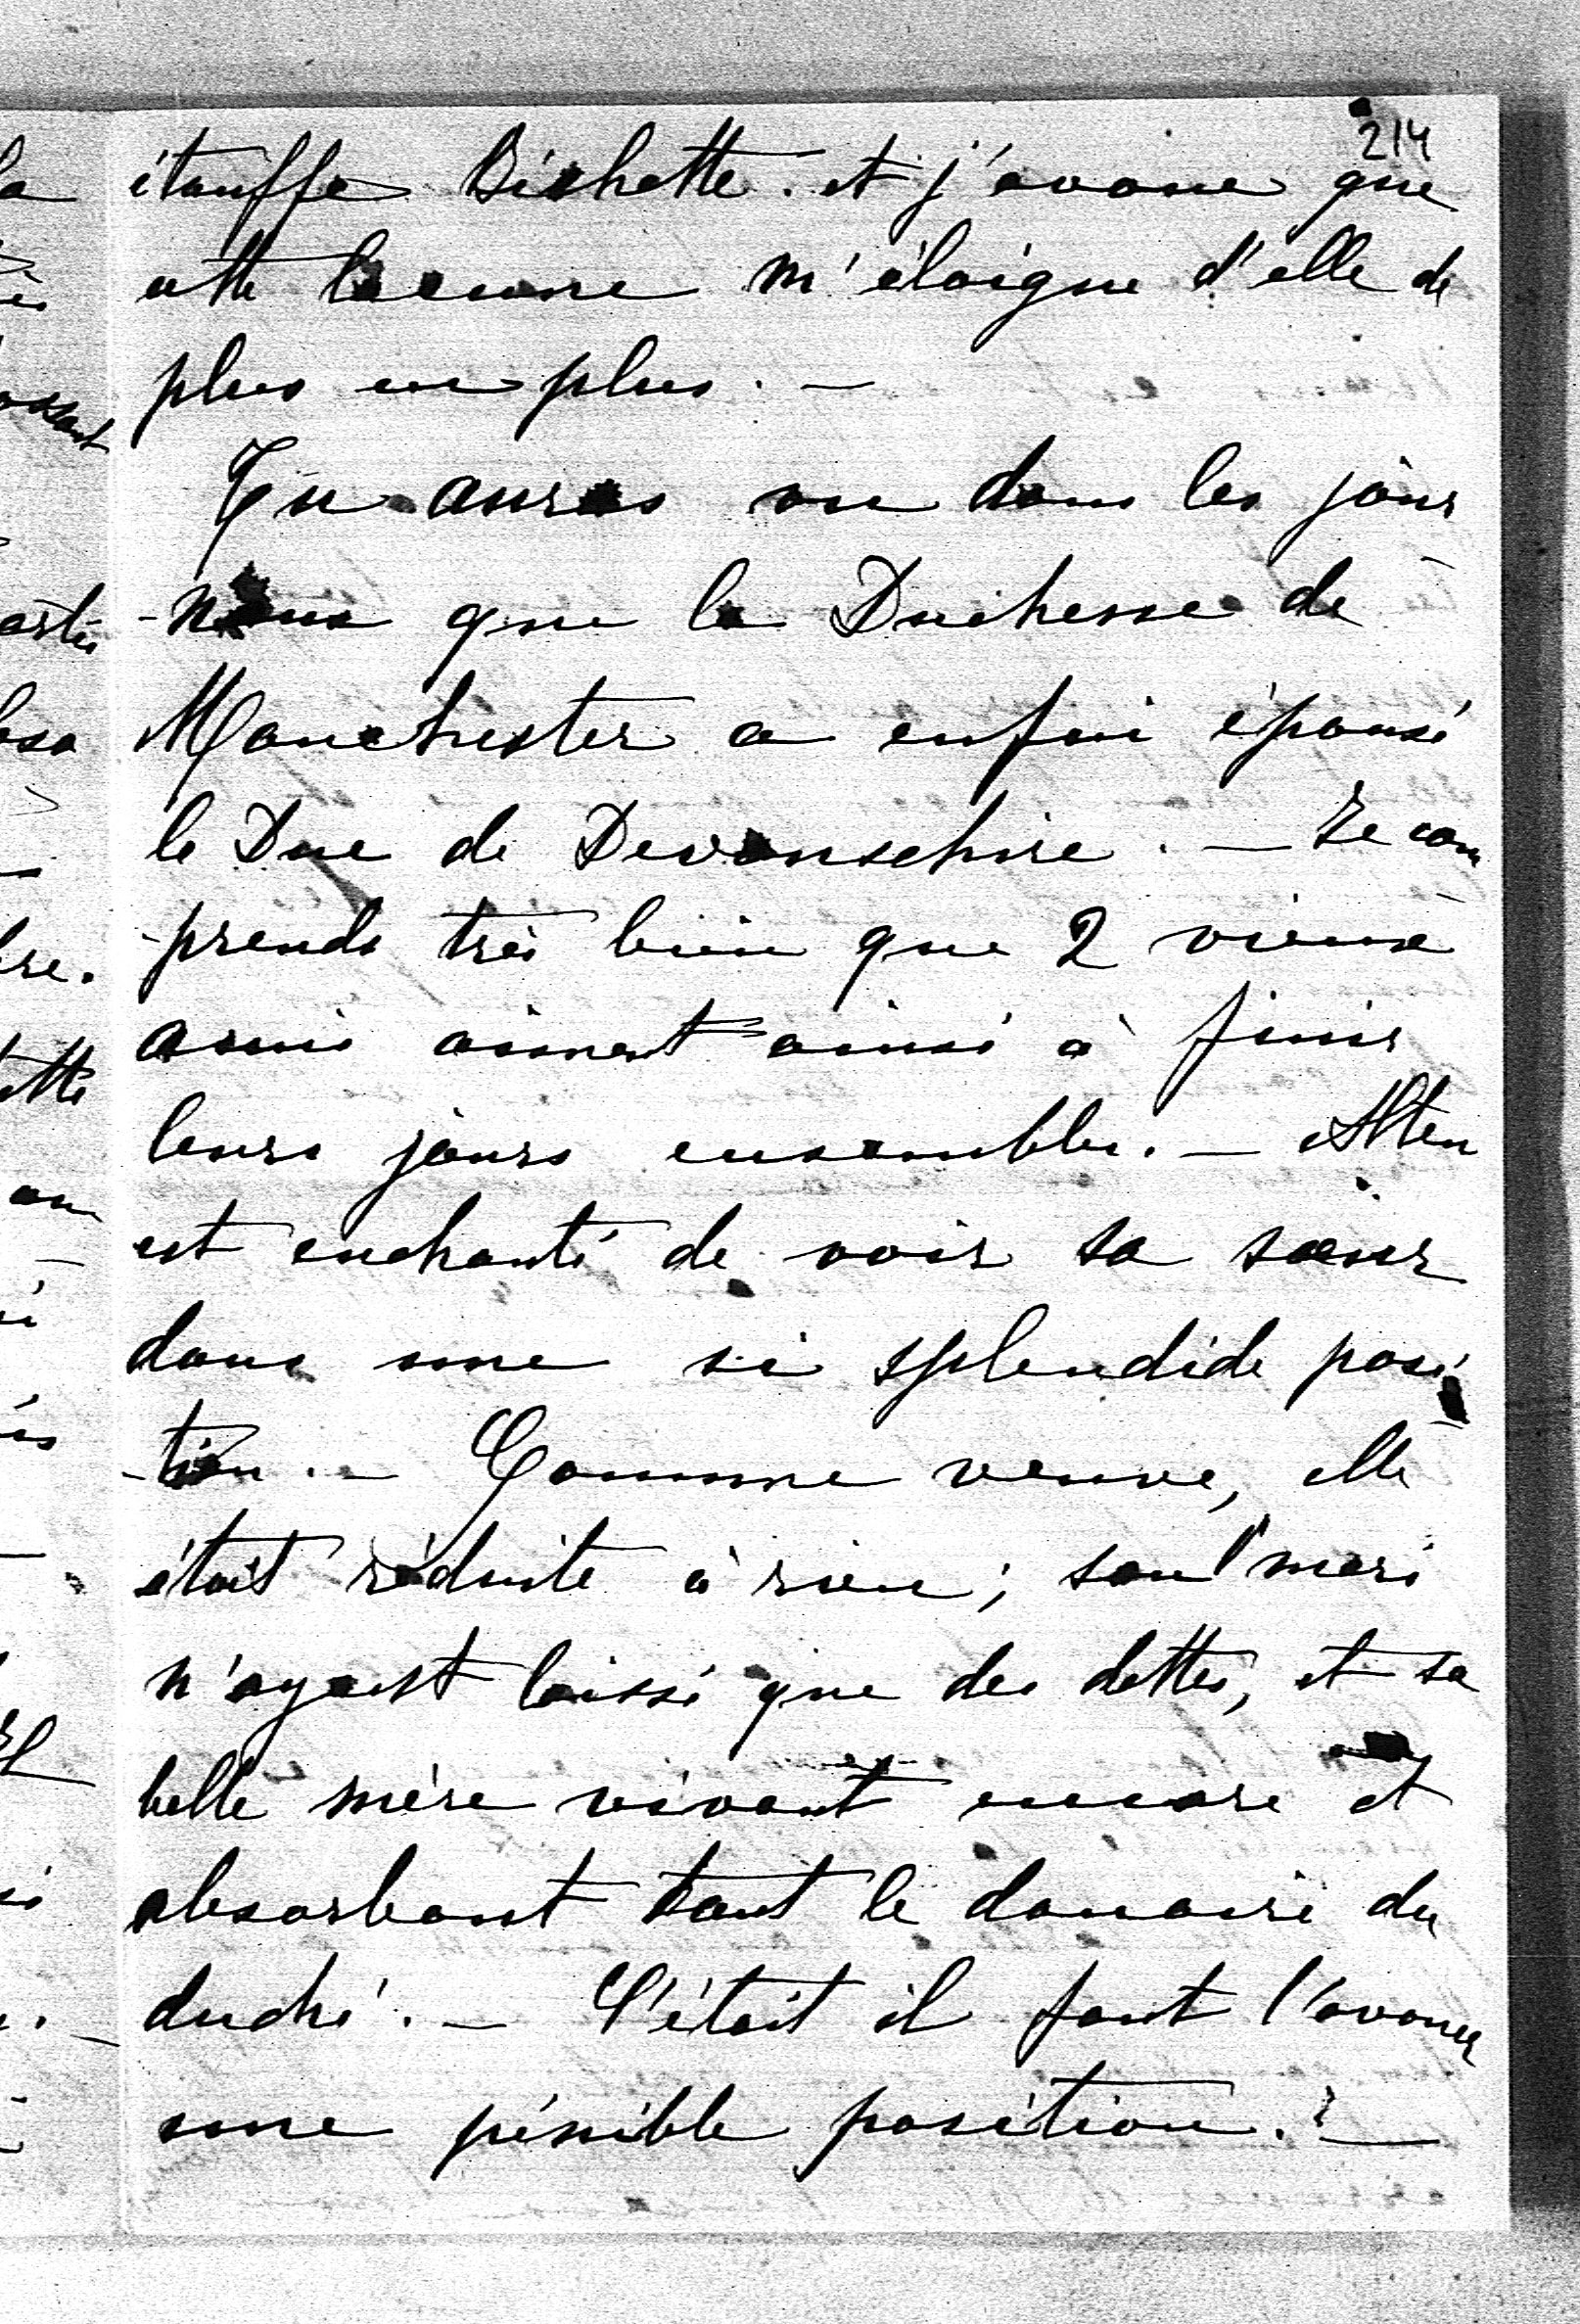 214
étouffe Bichette. et j'avoue que
cette lacune m'éloigne d'elle de
plus en plus. —
Tu auras vu dans les jour
-naux que la Duchesse de
Manchester a enfin épousé
le Duc de Devonschire. — Je com
-prends très bien que 2 vieux
amis aiment ainsi à finir
leurs jours ensembles. — Alten
est enchanté de voir sa sœur
dans une si splendide posi
-tion. — Comme veuve, elle
était réduite à rien; son mari
n'ayant laissé que des dettes, et sa
belle mère vivant encore et
absorbant tout le douaire du
duché. — C'était il faut l'avouer
une pénible position. —